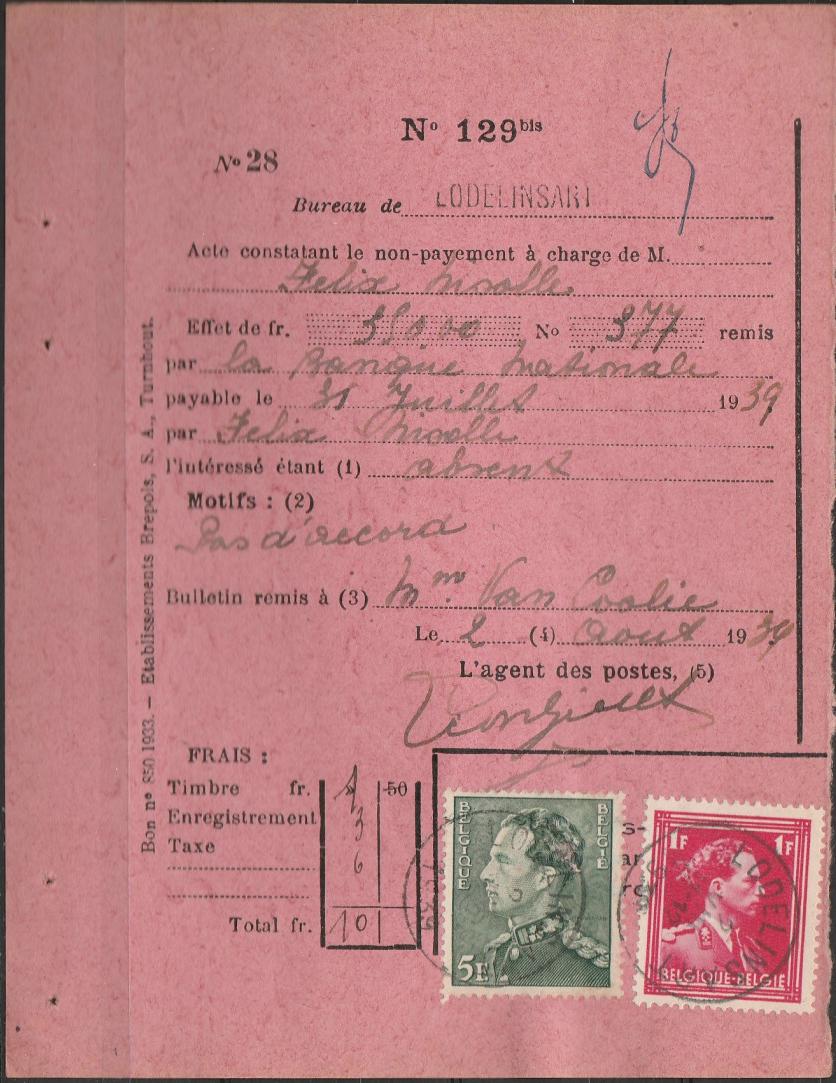 N° 129bis
N° 28
Bureau de LODELINSART
Acte constatant le non-payement à charge de M.
Felix
Effet de fr. N° 377 remis
par la Banque Nationale
payable le 31 Juillet 1939
par Felix
l'intéressé étant (1) absent
Motifs : (2)
Pas d'accord
Bulletin remis à (3) Mme Van
Le 2 (4) Aout 1939
L'agent des postes, (5)
FRAIS :
Timbre fr. 1 50
Enregistrement 3
Taxe 6
Total fr. 10
Bon n° 850 1933. — Etablissements Brepols, S. A., Turnhout.
BELGIQUE BELGIË
5F
1F 1F
BELGIQUE-BELGIË
LODELINSART